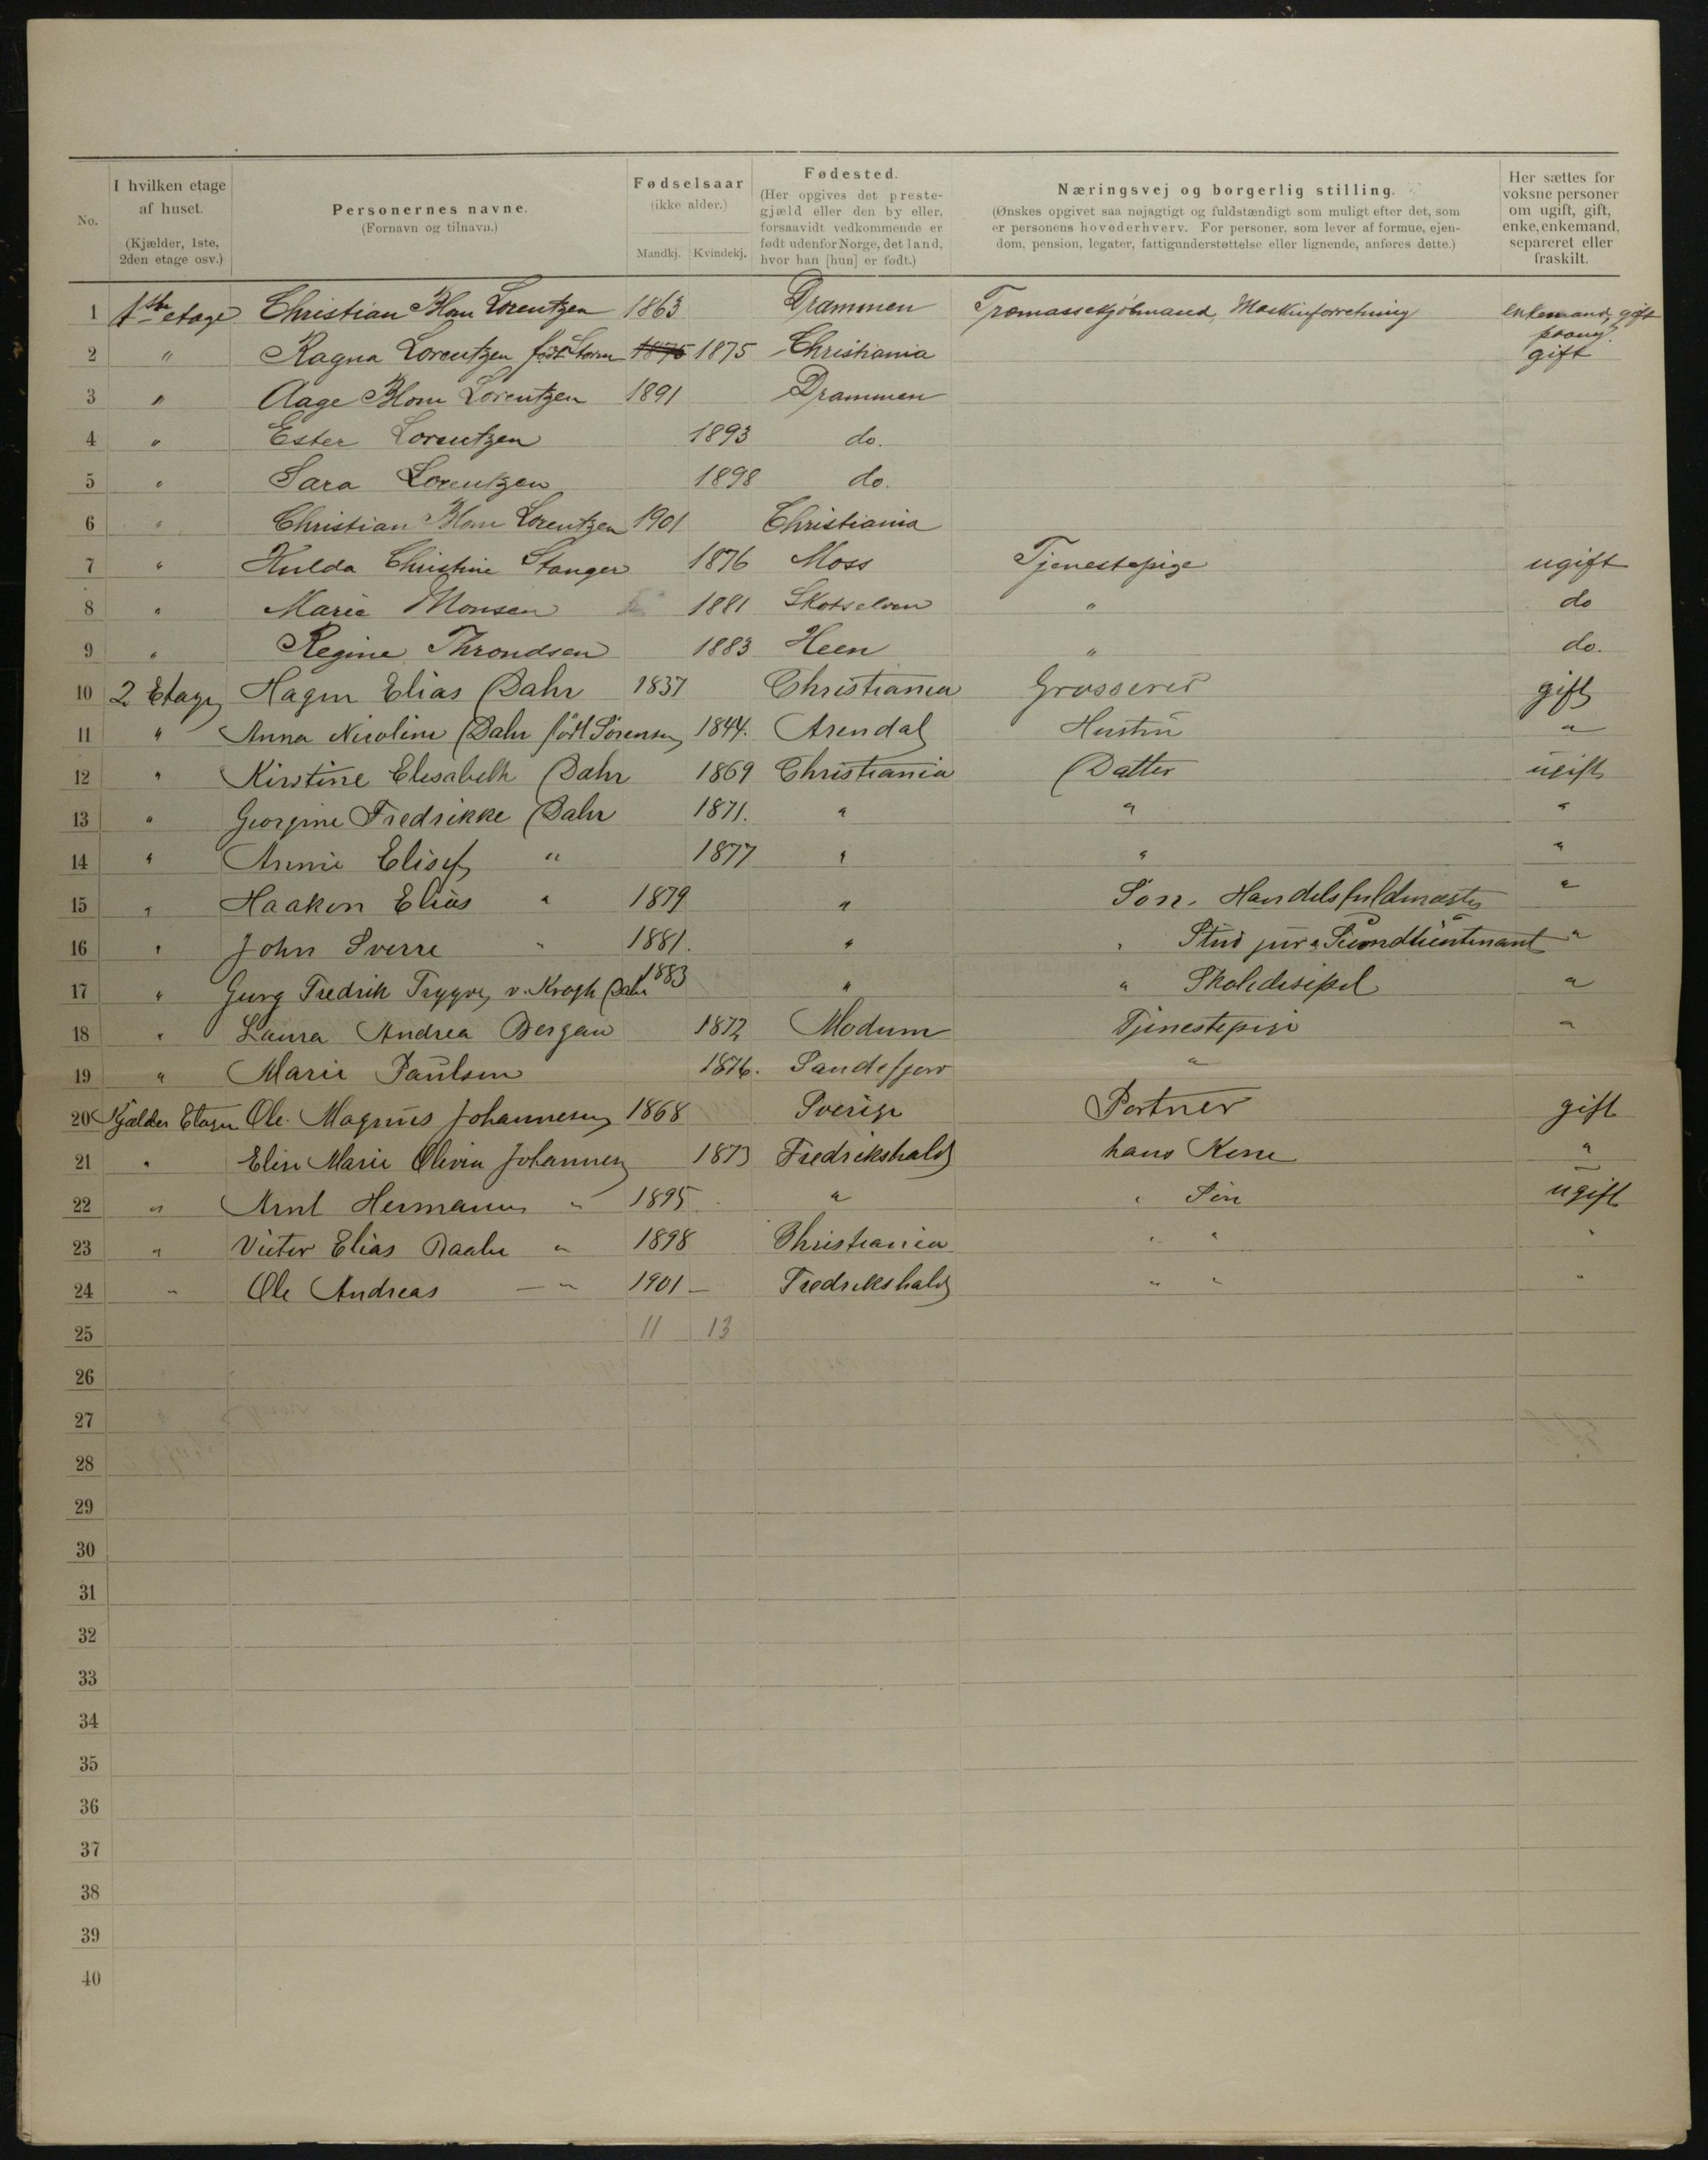 No. | I hvilken etage af huset. (Kjælder, 1ste, 2den etage osv.) | Personernes navne. (Fornavn og tilnavn.) | Fødselsaar (ikke alder.) Mandkj. Kvindekj. | Fødested. (Her opgives det prestegjæld eller den by eller, forsaavidt vedkommende er født udenfor Norge, det land, hvor han [hun] er født.) | Næringsvej og borgerlig stilling. (Ønskes opgivet saa nøjagtigt og fuldstændigt som muligt efter det, som er personens hovederhverv. For personer, som lever af formue, ejendom, pension, legater, fattigunderstøttelse eller lignende, anføres dette.) | Her sættes for voksne personer om ugift, gift, enke, enkemand, separeret eller fraskilt.
1 1ste etage Christian Blom Lorentzen 1863 Drammen Træmassekjøbmand, Maskinforretning enkemand, gift paany
2 " Ragna Lorentzen født Storm 1875 1875 Christiania gift
3 " Aage Blom Lorentzen 1891 Drammen
4 " Ester Lorentzen 1893 do.
5 " Sara Lorentzen 1898 do.
6 " Christian Blom Lorentzen 1901 Christiania
7 " Hulda Christine Stanger 1876 Moss Tjenestepige ugift
8 " Marie Monsen 1881 Skotselven " do
9 " Regine Throndsen 1883 Heen " do.
10 2 Etage Hagm Elias Dahr 1837 Christiania Grosserer gift
11 " Anna Nicoline Dahr født Sörensen 1844. Arendal Hustru "
12 " Kirstine Elisabeth Dahr 1869 Christiania Datter ugift
13 " Georgine Fredrikke Dahr 1871. " " "
14 " Annie Elisef " 1877 " " "
15 " Haakon Elias " 1879 " Sön. Handelsfuldmægtig "
16 " John Sverre " 1881. " " Stud jur & Secondlieutenant "
17 " Georg Fredrik Trygve v. Krogh Dahr 1883 " " Skoledisipel "
18 " Laura Andrea Bergan 1872 Modum Tjenestepige "
19 " Marie Paulsen 1876. Sandefjord "
20 Kjælder Etagen Ole Magnus Johannesen 1868 Sverige Portner gift
21 " Elise Marie Olivia Johannesen 1873 Fredrikshald hans Kone "
22 " Arnt Hermann " 1895 " " Sön ugift
23 " Victor Elias Daahr " 1898 Christiania " " "
24 " Ole Andreas — " 1901 — Fredrikshald " " "
25 11 13
26
27
28
29
30
31
32
33
34
35
36
37
38
39
40